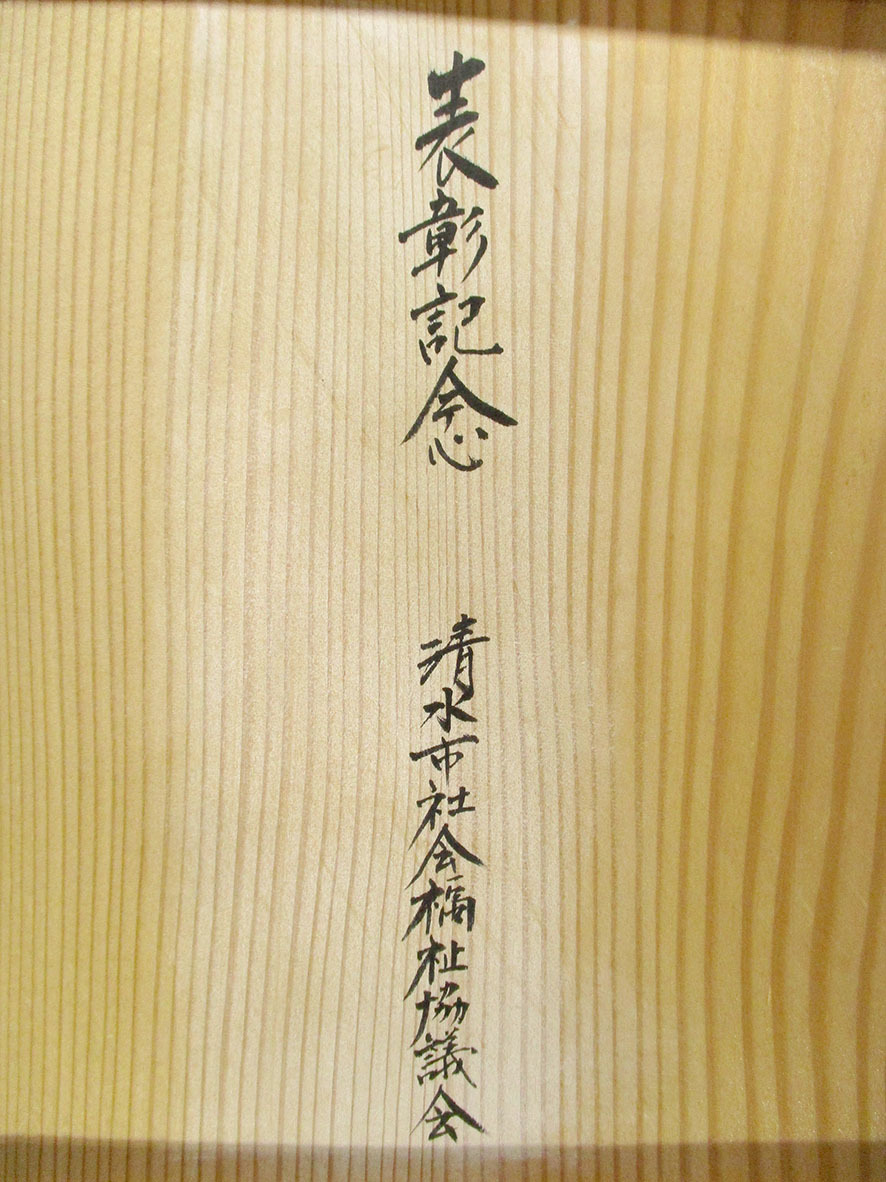 表彰記念
清水市社会福祉協議会